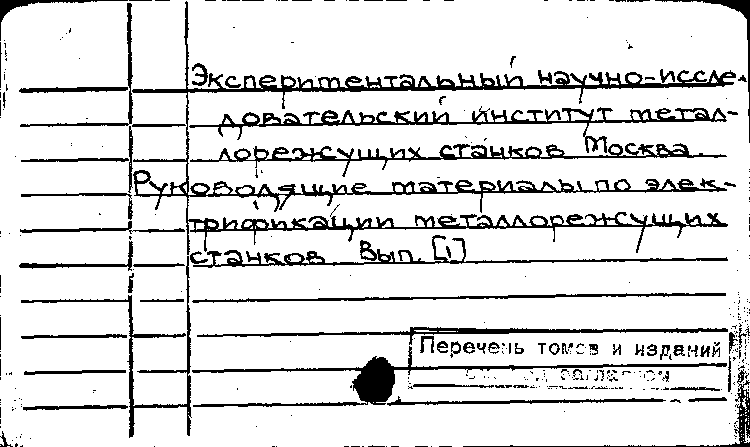 Экспериментальный научно-иссле-
довательский институт метал-
лорежущих станков Москва.
Руководящие материалы по элек-
трификации металлорежущих
станков Вып. [1]
Перечень томов и изданий
заглавием